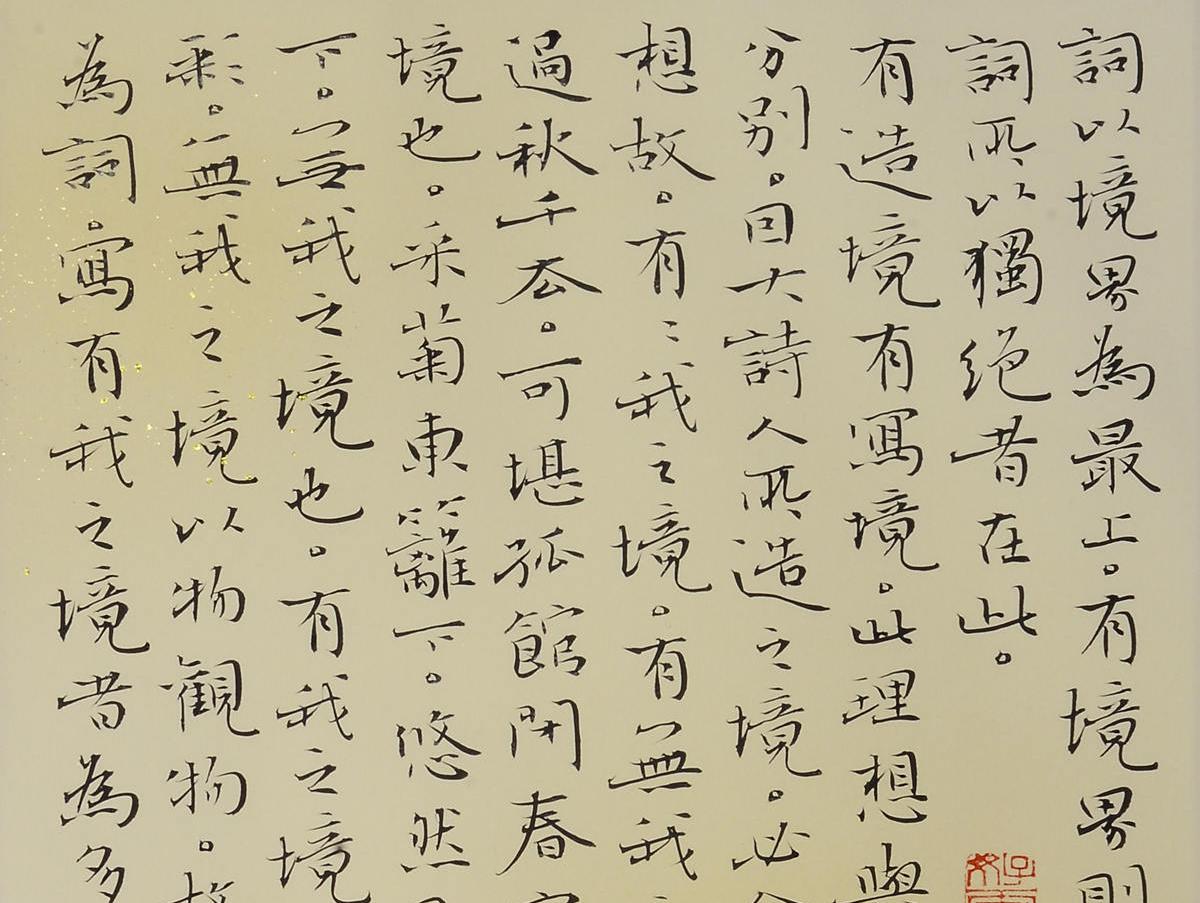 詞以境界為最上。有境界則
詞所以獨絕者在此。
有造境有寫境。此理想與
分別。因大詩人所造之境。必
想故。有〻我之境。有無我
過秋千去。可堪孤館閉春
境也。采菊東籬下。悠然
下。無我之境也。有我之境
彩。無我之境以物觀物。故
為詞。寫有我之境者為多